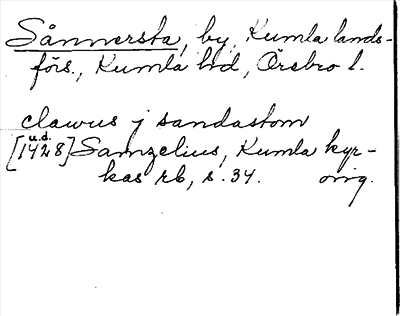 Sånnersta, by, Kumla lands-
förs., Kumla hd, Örebro l.
clawus j sandastom
[u.d. 1428] Samzelius, Kumla kyr-
kas rb, s. 34. orig.